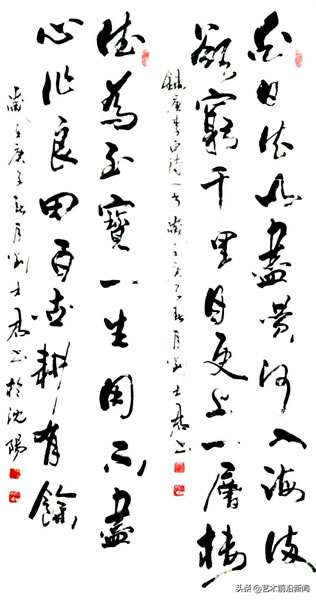 白日依山盡黃河入海流
欲窮千里目更上一層樓
歲在庚子秋月劉士
德為至寶一生用不盡
心作良田百世耕有餘
歲在庚子秋月劉士 書於沈陽
头条@艺术前沿新闻